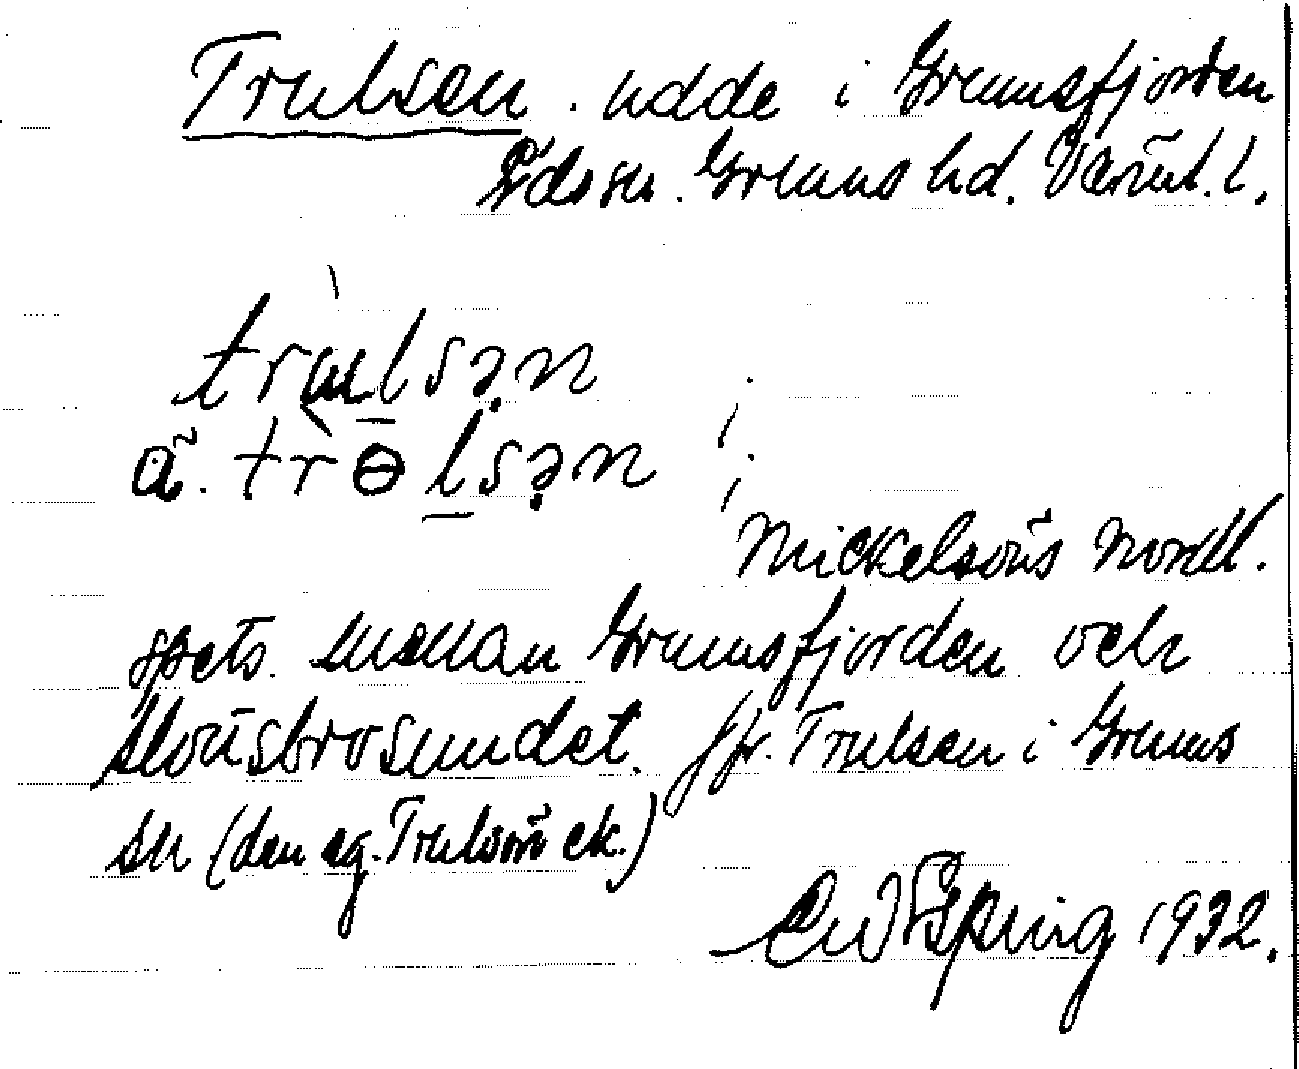 Trulsen. udde i Grumsfjorden
Eds sn. Grums hd. Värml. l.
trulsən
ä. trɵlsən
Mickelsöns nordl.
spets mellan Grumsfjorden och
Slottsbrosundet. Jfr. Trulsen i Grums
sn (den eg. Trulsön ek.)
1932.